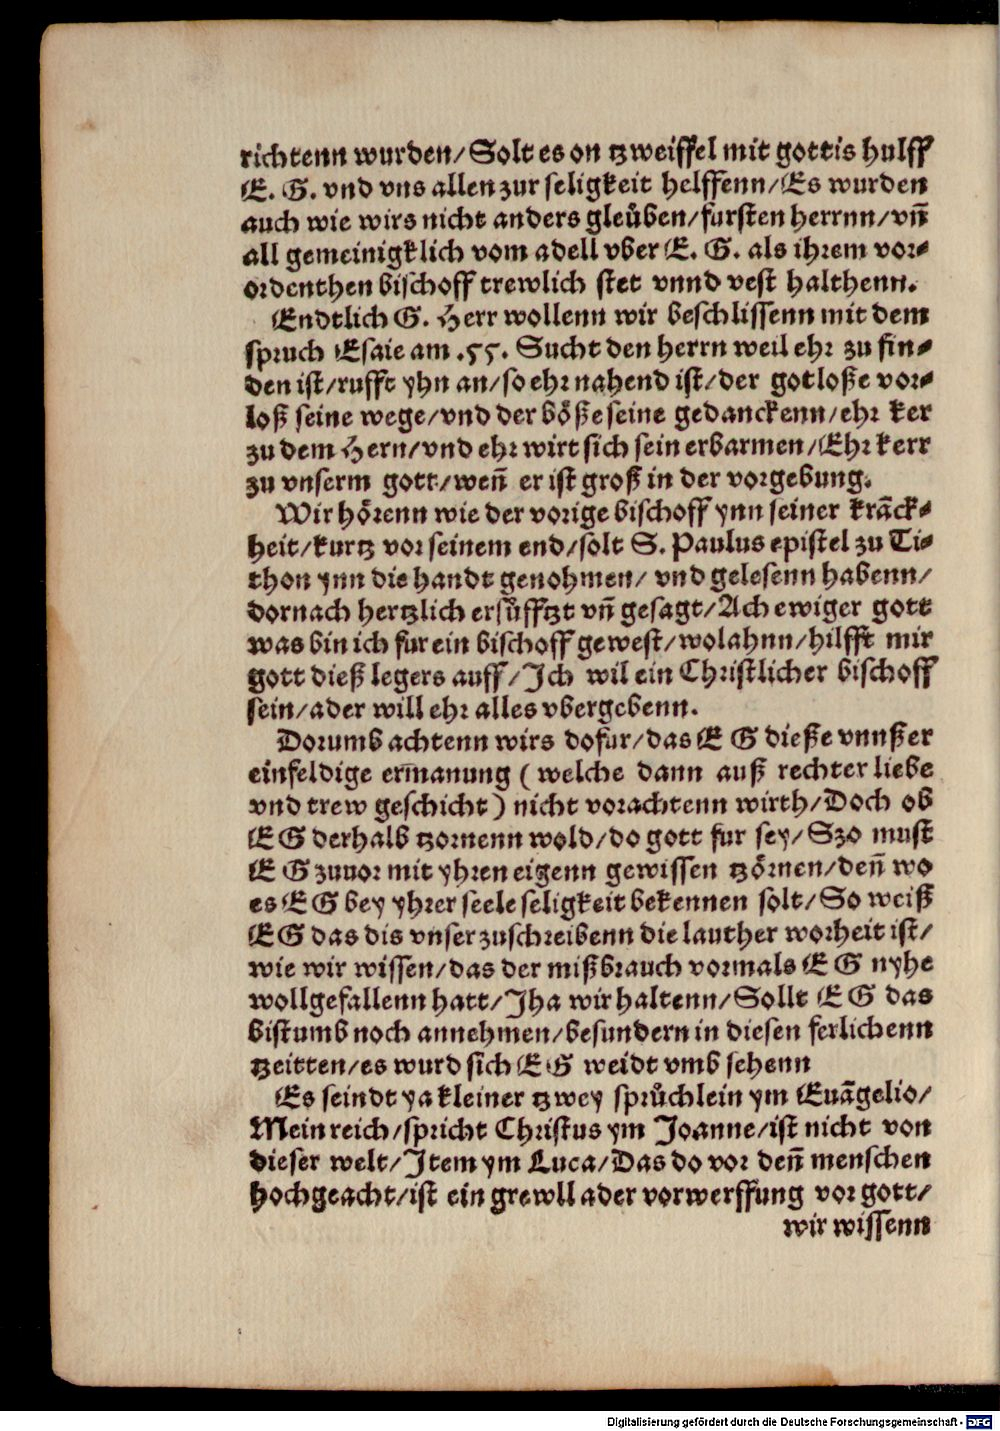 richtenn wurden/Solt es on tzweiffel mit gottis hulff
E. G. vnd vns allen zur seligkeit helffenn/Es wurden
auch wie wirs nicht anders gleůben/fursten herrnn/vn̄
all gemeinigklich vom adell vber E. G. als ihrem vor⸗
ordenthen bischoff trewlich stet vnnd vest halthenn.
Endtlich G. Herr wollenn wir beschlissenn mit dem
spruch Esaie am .55. Sucht den herrn weil ehr zu fin⸗
den ist/rufft yhn an/so ehr nahend ist/der gotloße vor⸗
loß seine wege/vnd der bőße seine gedanckenn/ehr ker
zu dem Hern/vnd ehr wirt sich sein erbarmen/Ehr kerr
zu vnserm gott/wen̄ er ist groß in der vorgebung.
Wir hőrenn wie der vorige bischoff ynn seiner krāck⸗
heit/kurtz vor seinem end/solt S. Paulus epistel zu Ti⸗
thon ynn die handt genohmen/ vnd gelesenn habenn/
dornach hertzlich ersůfftzt vn̄ gesagt/Ach ewiger gott
was bin ich fur ein bischoff gewest/wolahnn/hilfft mir
gott dieß legers auff/Ich wil ein Christlicher bischoff
sein/ader will ehr alles vbergebenn.
Dorumb achtenn wirs dofur/das E G dieße vnnßer
einfeldige erm̄anung ( welche dann auß rechter liebe
vnd trew geschicht ) nicht vorachtenn wirth/Doch ob
E G derhalb tzornenn wold/do gott fur sey/Szo must
E G zuuor mit yhren eigenn gewissen tzőrnen/den̄ wo
es E G bey yhrer seele seligkeit bekennen solt/So weiß
E G das dis vnser zuschreibenn die lauther worheit ist/
wie wir wissen/das der mißbrauch vormals E G nyhe
wollgefallenn hatt/Jha wir haltenn/Sollt E G das
bistumb noch annehmen/besundern in diesen ferlichenn
tzeitten/es wurd sich E G weidt vmb sehenn
Es seindt ya kleiner tzwey sprůchlein ym Euāgelio/
Mein reich/spricht Christus ym Joanne/ist nicht von
dieser welt/Item ym Luca/Das do vor den̄ menschen
hochgeacht/ist ein grewll ader vorwerffung vor gott/
wir wissenn
Digitalisierung gefördert durch die Deutsche Forschungsgemeinschaft - DFG